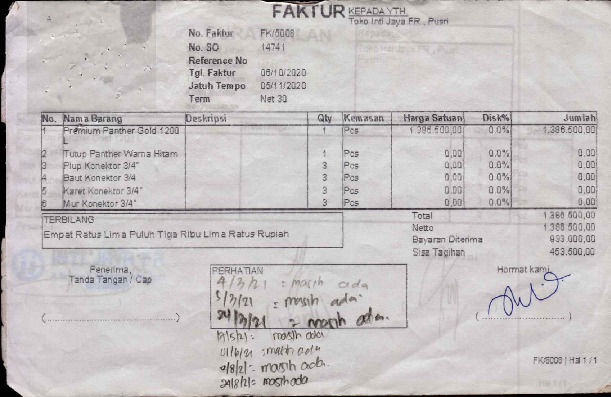 FAKTUR KEPADA YTH.
Toko Inti Jaya FR., Pusri
No. Faktur FK/5008
No. SO 14741
Reference No
Tgl. Faktur 06/10/2020
Jatuh Tempo 05/11/2020
Term Net 30
No. Nama Barang Deskripsi Qty Kemasan Harga Satuan Disk% Jumlah
1 Premium Panther Gold 1200 L 1 Pcs 1.386.500,00 0.0% 1.386.500,00
2 Tutup Panther Warna Hitam 1 Pcs 0,00 0.0% 0,00
3 Plup Konektor 3/4" 3 Pcs 0,00 0.0% 0,00
4 Baut Konektor 3/4 3 Pcs 0,00 0.0% 0,00
5 Karet Konektor 3/4" 3 Pcs 0,00 0.0% 0,00
6 Mur Konektor 3/4" 3 Pcs 0,00 0.0% 0,00
TERBILANG
Empat Ratus Lima Puluh Tiga Ribu Lima Ratus Rupiah
Total 1.386.500,00
Netto 1.386.500,00
Bayaran Diterima 933.000,00
Sisa Tagihan 453.500,00
Penerima,
Tanda Tangan / Cap
PERHATIAN
4/3/21 = masih ada
5/3/21 = masih ada
24/3/21 = masih ada
masih ada
masih ada
masih ada
24/8/21 = masih ada
Hormat kami
FK/5008 | Hal 1 / 1